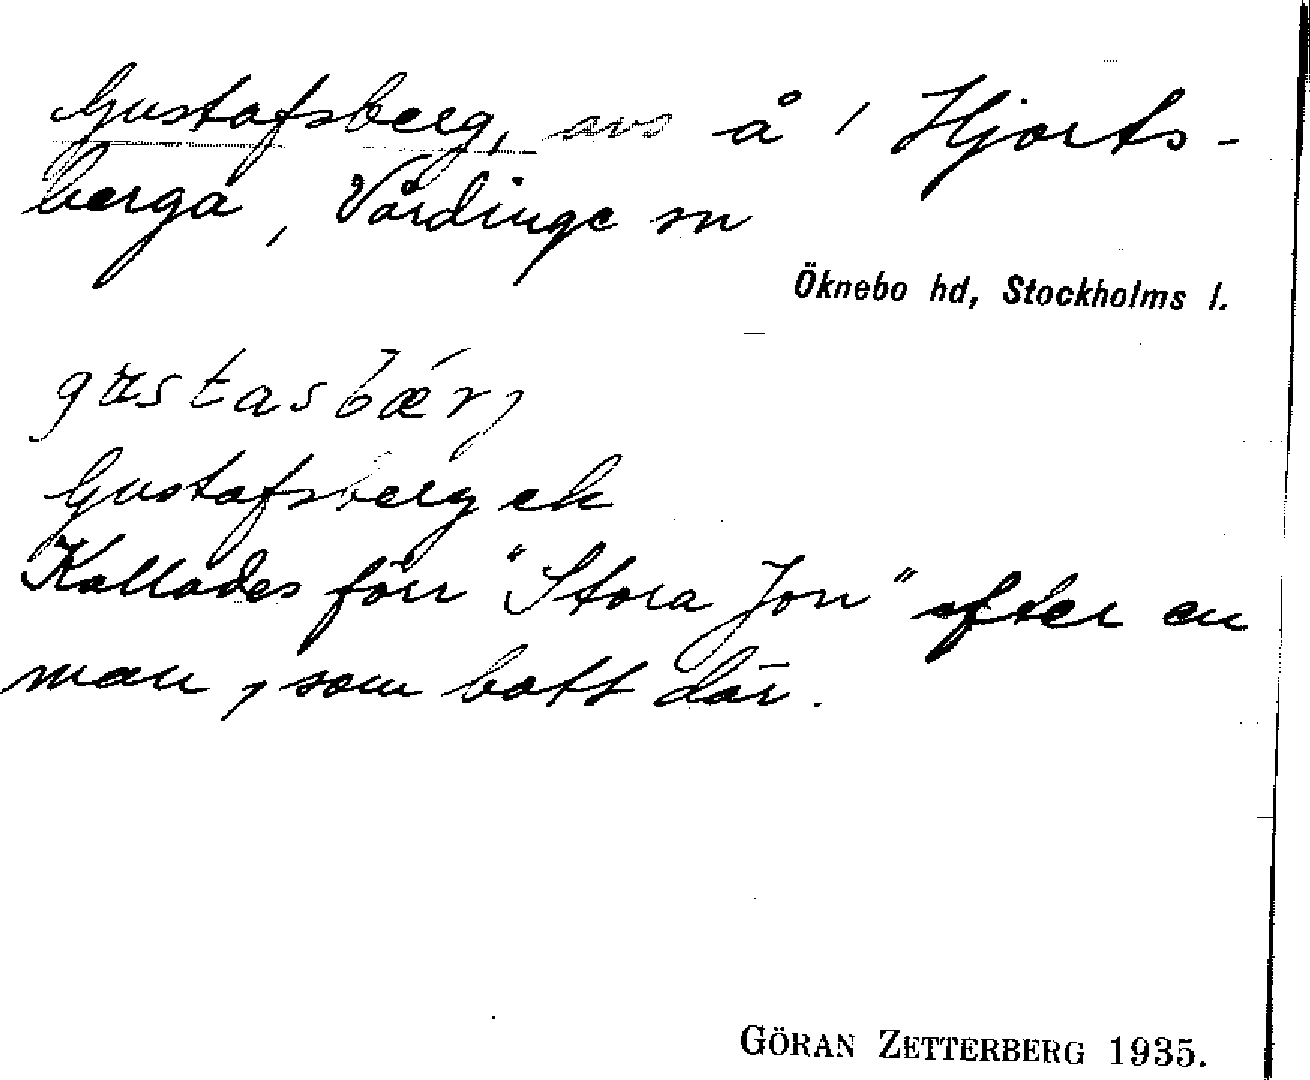 Gustafsberg, avs å 1 Hjorts-
berga, Vårdinge sn
Öknebo hd, Stockholms l.
gustasbǽrj
Gustafsberg ek
Kallades förr "Stora Jon" efter en
man, som bott där.
GÖRAN ZETTERBERG 1935.